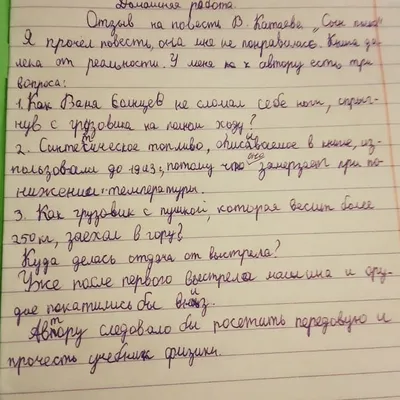 Домашняя работа
Отзыв на повесть В. Катаева „Сын полка"
Я прочёл повесть, она мне не понравилась. Книга да-
лека от реальности. У меня к автору есть три
вопроса:
1. Как Ваня Солнцев не сломал себе ноги, спрыг-
нув с грузовика на полном ходу?
2. Синтетическое топливо, описываемое в книге, ис-
пользовали до 1943, потому что оно замерзает при по-
нижении температуры.
3. Как грузовик с пушкой, которая весит более
250 кг, заехал в гору?
Куда делась отдача от выстрела?
Уже после первого выстрела машина и ору-
дие покатились бы вниз.
Автору следовало бы посетить передовую и
прочесть учебник физики.